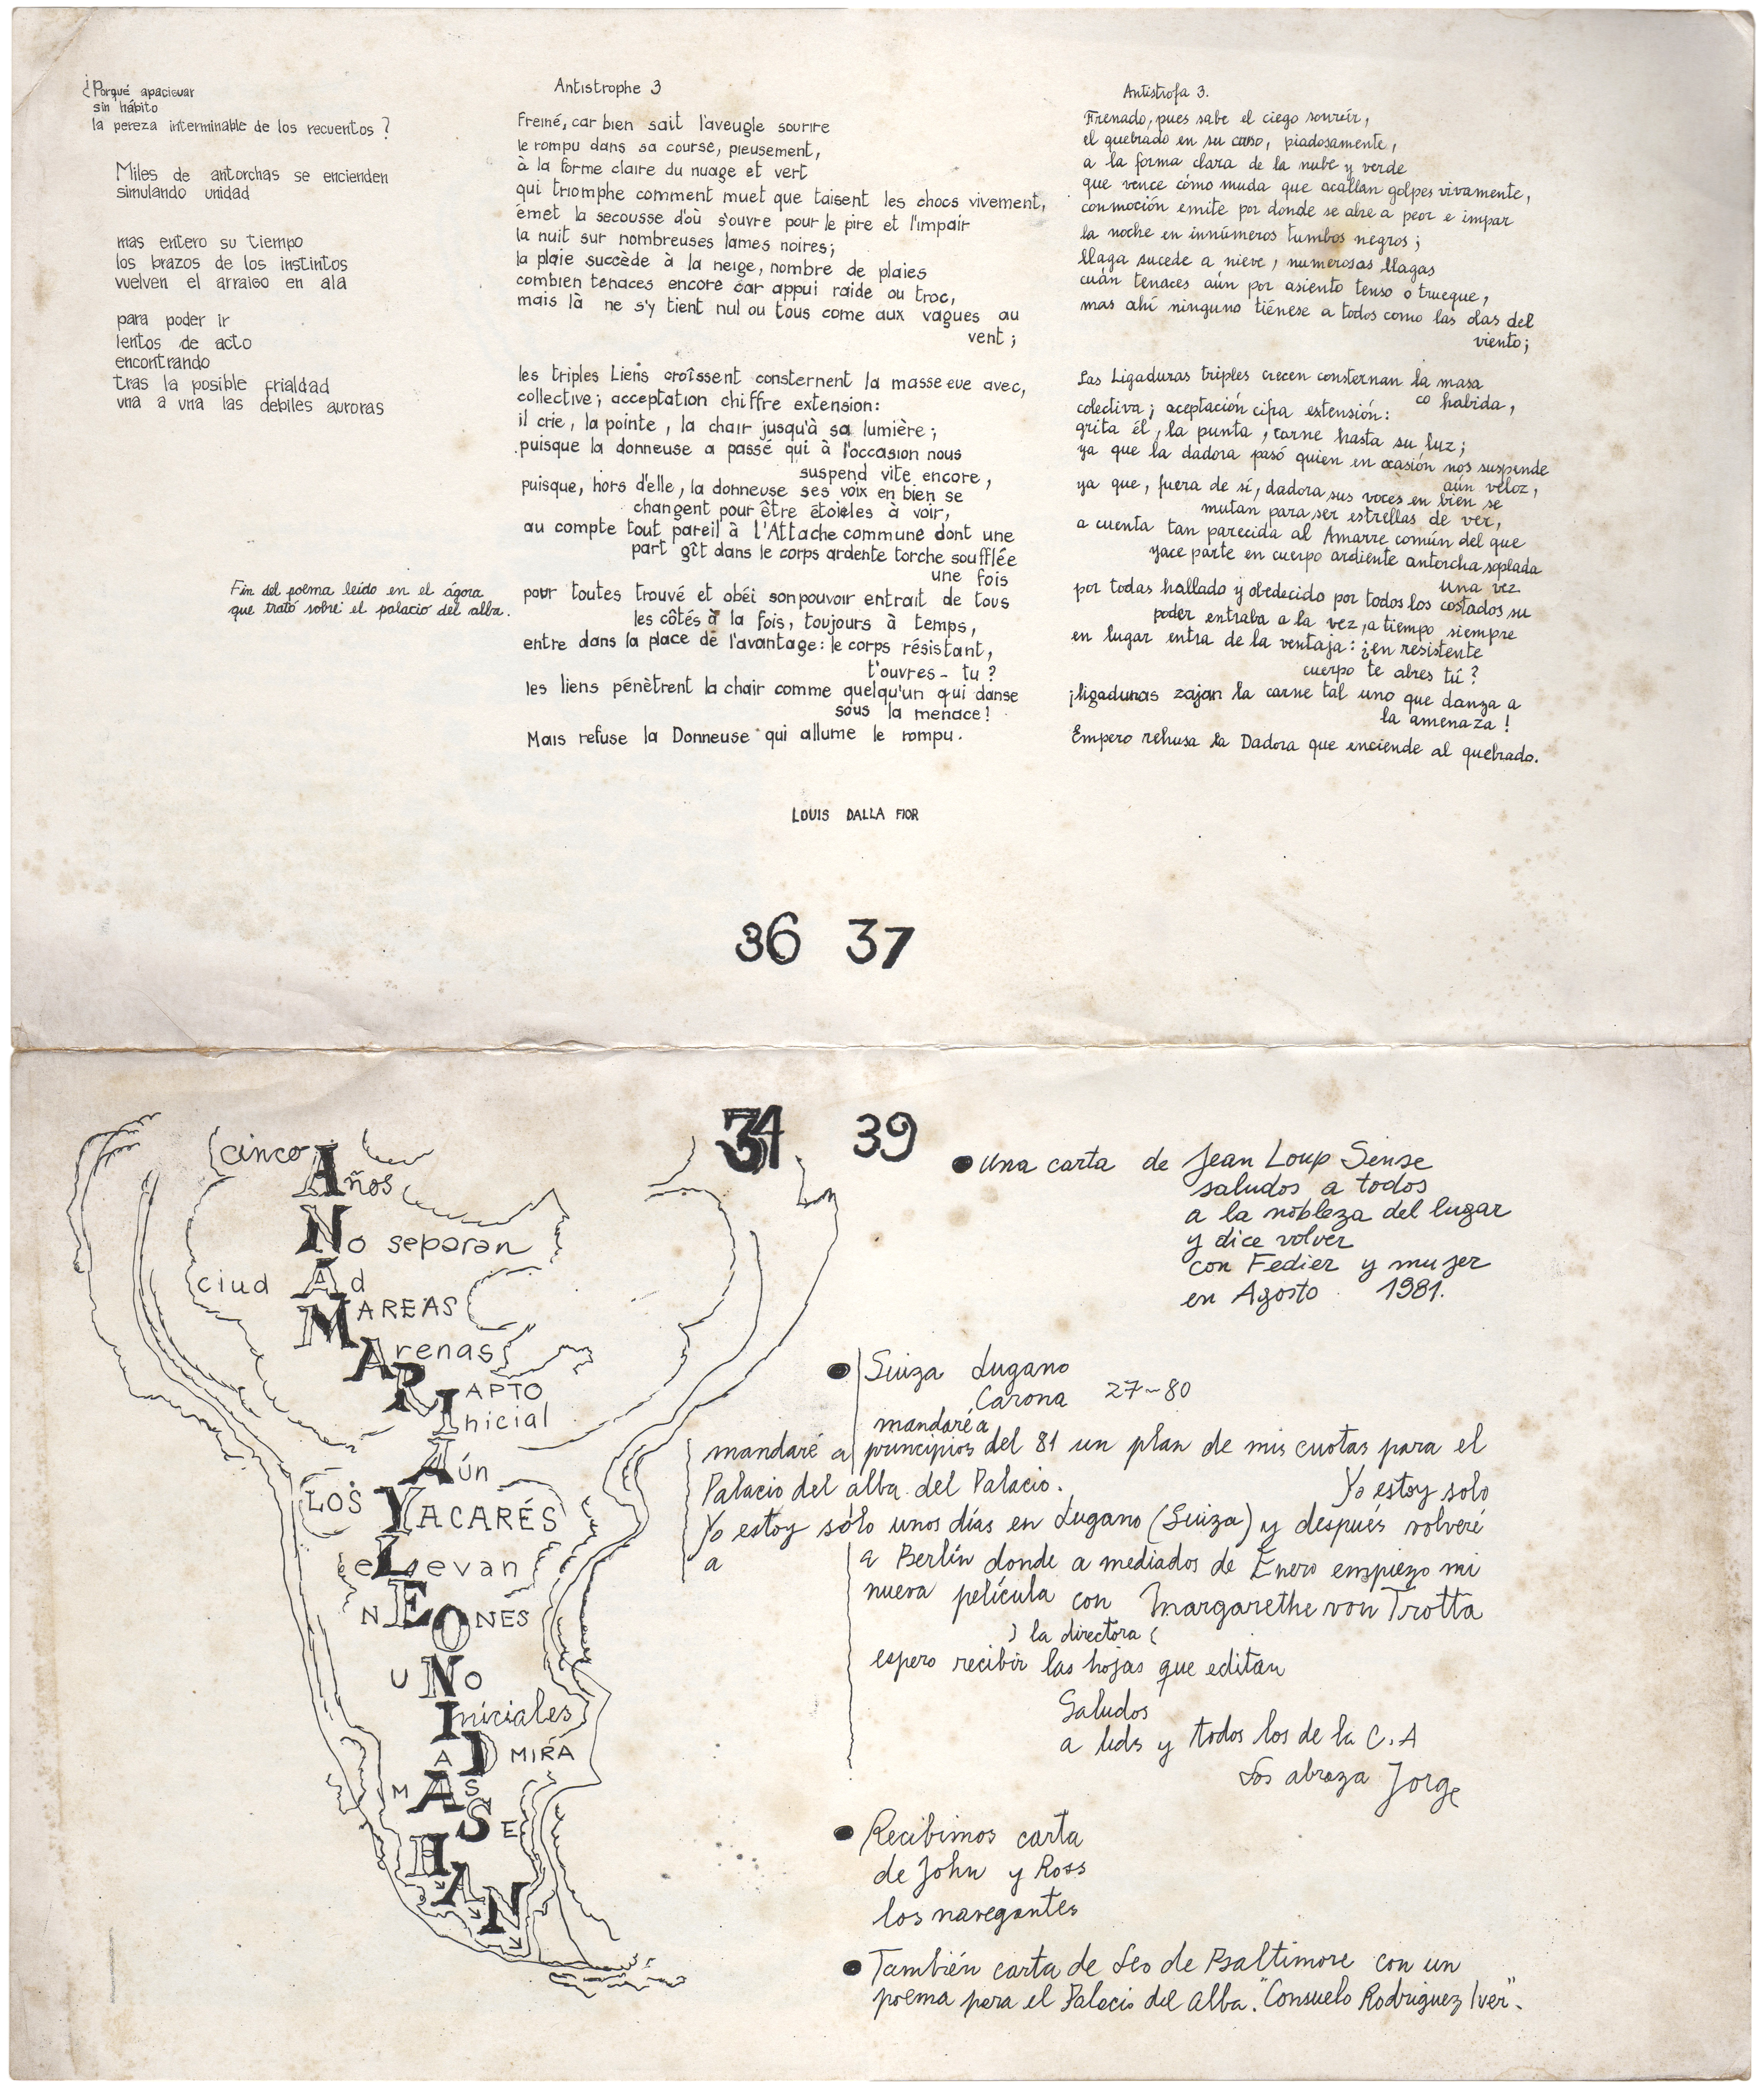 ¿Porqué apaciguar
sin hábito
la pereza interminable de los recuentos ?
Miles de antorchas se encienden
simulando unidad
mas entero su tiempo
los brazos de los instintos
vuelven el arraigo en ala
para poder ir
lentos de acto
encontrando
tras la posible frialdad
una a una las debiles auroras
Fin del poema leído en el ágora
que trató sobre el palacio del alba.
Antistrophe 3
Freiné, car bien sait l'aveugle sourire
le rompu dans sa course, pieusement,
à la forme claire du nuage et vert
qui triomphe comment muet que taisent les chocs vivement,
émet la secousse d'où s'ouvre pour le pire et l'impair
la nuit sur nombreuses lames noires;
la plaie succède à la neige, nombre de plaies
combien tenaces encore car appui raide ou troc,
mais là ne s'y tient nul ou tous come aux vagues au
vent ;
les triples Liens croîssent consternent la masse eue avec,
collective; acceptation chiffre extension:
il crie, la pointe, la chair jusqu'à sa lumière;
puisque la donneuse a passé qui à l'occasion nous
suspend vite encore,
puisque, hors d'elle, la donneuse ses voix en bien se
changent pour être étoiles à voir,
au compte tout pareil à l'Attache commune dont une
part gît dans le corps ardente torche soufflée
une fois
pour toutes trouvé et obéi son pouvoir entrait de tous
les côtés à la fois, toujours à temps,
entre dans la place de l'avantage: le corps résistant,
t'ouvres - tu ?
les liens pénètrent la chair comme quelqu'un qui danse
sous la menace!
Mais refuse la Donneuse qui allume le rompu.
Antistrofa 3.
Frenado, pues sabe el ciego sonreír,
el quebrado en su curso, piadosamente,
a la forma clara de la nube y verde
que vence cómo muda que acallan golpes vivamente,
conmoción emite por donde se abre a peor e impar
la noche en innúmeros tumbos negros;
llaga sucede a nieve, numerosas llagas
cuán tenaces aún por asiento tenso o trueque,
mas ahí ninguno tiénese a todos como las olas del
viento;
Las Ligaduras triples crecen consternan la masa
co habida,
colectiva; aceptación cifra extensión:
grita él, la punta, carne hasta su luz;
ya que la dadora pasó quien en ocasión nos suspende
aún veloz,
ya que, fuera de sí, dadora sus voces en bien se
mutan para ser estrellas de ver,
a cuenta tan parecida al Amarre común del que
yace parte en cuerpo ardiente antorcha soplada
una vez
por todas hallado y obedecido por todos los costados su
poder entraba a la vez, a tiempo siempre
en lugar entra de la ventaja: ¿en resistente
cuerpo te abres tú?
¡ligaduras zajan la carne tal uno que danza a
la amenaza!
Empero rehusa la Dadora que enciende al quebrado.
LOUIS DALLA FIOR
36 37
39
cinco Años
No separan
ciudAd
MAREAS
Arenas
R
IAPTO
Inicial
Aún
LOS YACARÉS
eLevan
NEONES
UNO
Iniciales
ADMIRA
MAS
SE
HAN
●una carta de Jean Loup Sense
saludos a todos
a la nobleza del lugar
y dice volver
con Fedier y mujer
en Agosto 1981.
● Suiza Lugano
Carona 27-80
mandaré a
mandaré a principios del 81 un plan de mis cuotas para el
Palacio del alba del Palacio. Yo estoy solo
Yo estoy sólo unos días en Lugano (Suiza) y después volveré
a a Berlín donde a mediados de Enero empiezo mi
nueva película con Margarethe von Trotta
) la directora (
espero recibir las hojas que editan
Saludos
a uds y todos los de la C.A
Los abraza Jorge
● Recibimos carta
de John y Ross
los navegantes
● También carta de Leo de Baltimore con un
poema para el Palacio del Alba. "Consuelo Rodriguez Iver".